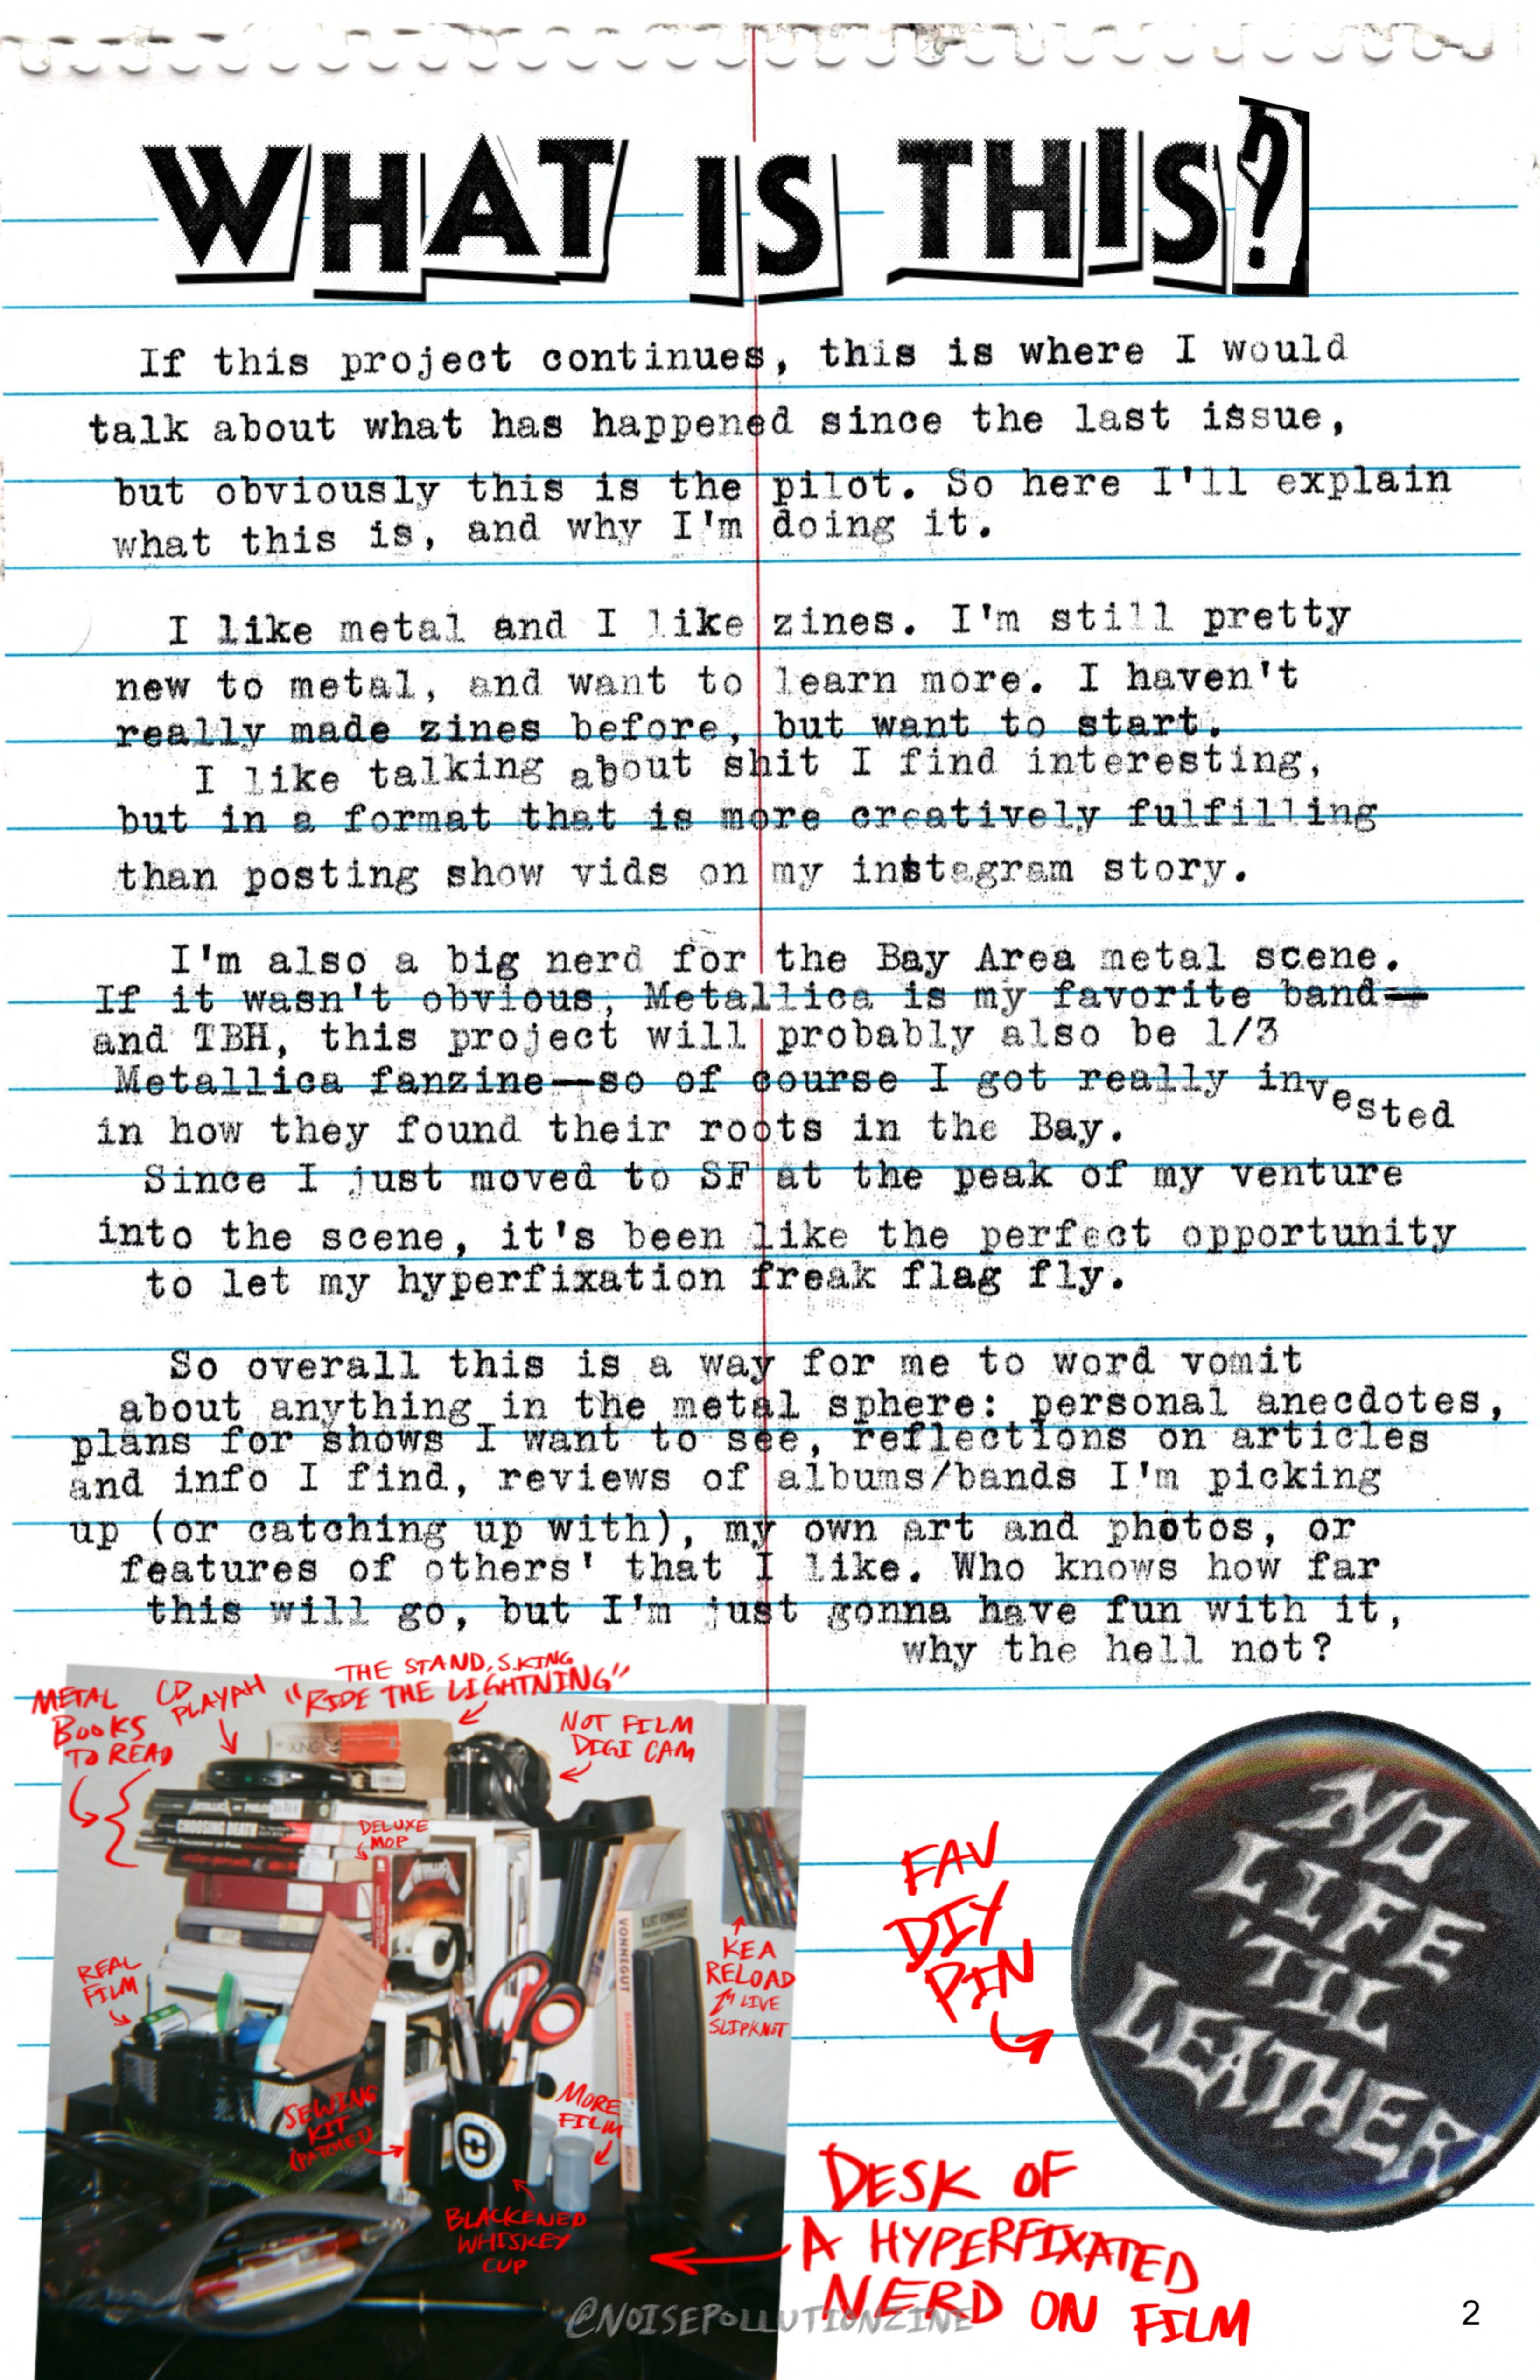 WHAT IS THIS?
If this project continues, this is where I would
talk about what has happened since the last issue,
but obviously this is the pilot. So here I'll explain
what this is, and why I'm doing it.
I like metal and I like zines. I'm still pretty
new to metal, and want to learn more. I haven't
really made zines before, but want to start.
I like talking about shit I find interesting,
but in a format that is more creatively fulfilling
than posting show vids on my instagram story.
I'm also a big nerd for the Bay Area metal scene.
If it wasn't obvious, Metallica is my favorite band—
and TBH, this project will probably also be 1/3
Metallica fanzine—so of course I got really invested
in how they found their roots in the Bay.
Since I just moved to SF at the peak of my venture
into the scene, it's been like the perfect opportunity
to let my hyperfixation freak flag fly.
So overall this is a way for me to word vomit
about anything in the metal sphere: personal anecdotes,
plans for shows I want to see, reflections on articles
and info I find, reviews of albums/bands I'm picking
up (or catching up with), my own art and photos, or
features of others' that I like. Who knows how far
this will go, but I'm just gonna have fun with it,
why the hell not?
METAL
BOOKS
TO READ
CD
PLAYAH
THE STAND, S.KING
"RIDE THE LIGHTNING"
NOT FILM
DIGI CAM
KING
CHOOSING DEATH
DELUXE
MOP
METALLICA
KURT VONNEGUT
VONNEGUT
REAL
FILM
KEA
RELOAD
LIVE
SLIPKNOT
SEWING
KIT
(PATCHES)
MORE
FILM
BLACKENED
WHISKEY
CUP
FAV
DIY
PIN
NO
LIFE
'TIL
LEATHER
DESK OF
A HYPERFIXATED
NERD ON FILM
@NOISEPOLLUTIONZINE
2